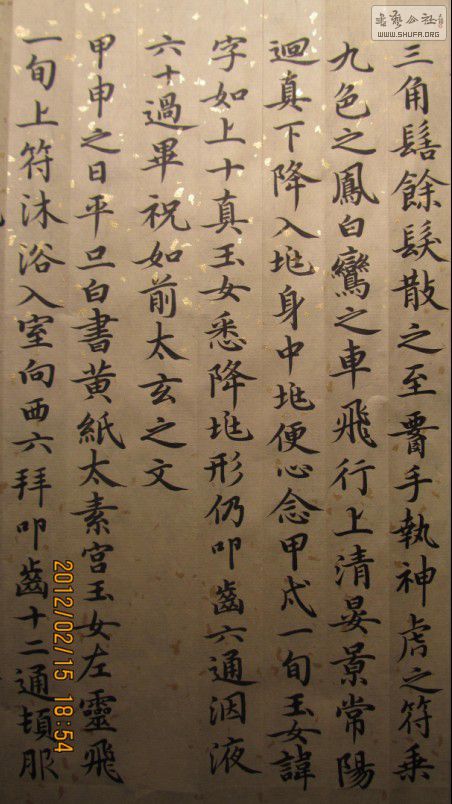 三角髻餘髮散之至䪿手執神虎之符乗
九色之鳳白鸞之車飛行上清晏景常陽
迴真下降入地身中地便心念甲戌一旬玉女諱
字如上十真玉女悉降地形仍叩齒六通洇液
六十過畢祝如前太玄之文
甲申之日平旦白書黃紙太素宮玉女左靈飛
一旬上符沐浴入室向西六拜叩齒十二通頓服
書藝公社
WWW.SHUFA.ORG
2012/02/15 18:54